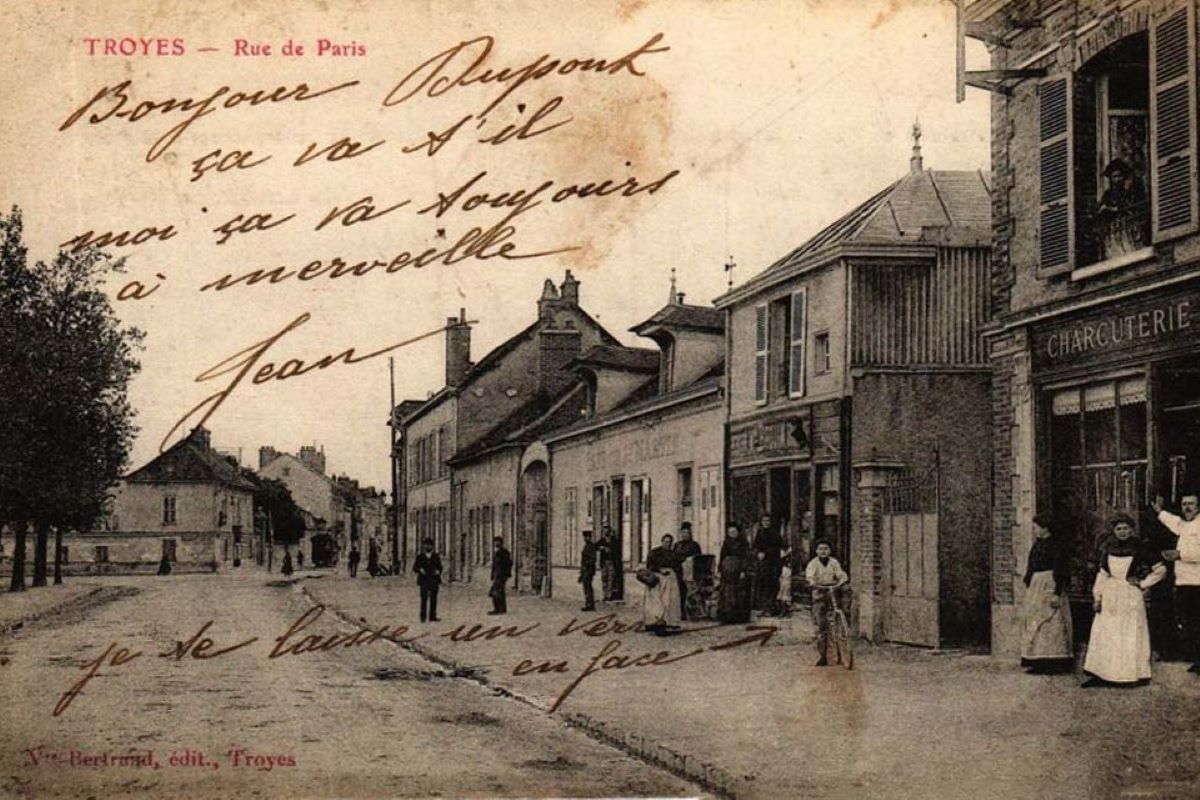 TROYES — Rue de Paris
Bonjour Dupont
ça va s'il
moi ça va toujours
à merveille
Jean
CHARCUTERIE
je te laisse un verre
en face
Vve Bertrand, édit., Troyes